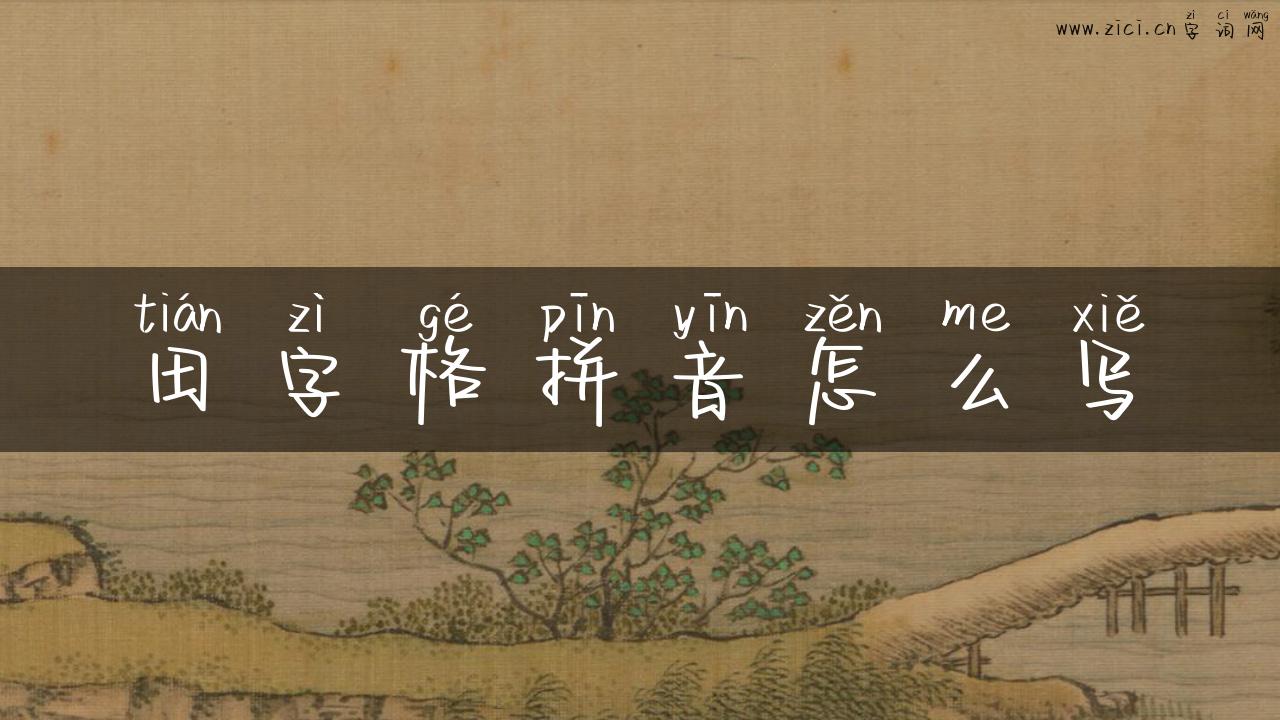 zì cí wǎng
www.zici.cn字词网
tián zì gé pīn yīn zěn me xiě
田字格拼音怎么写